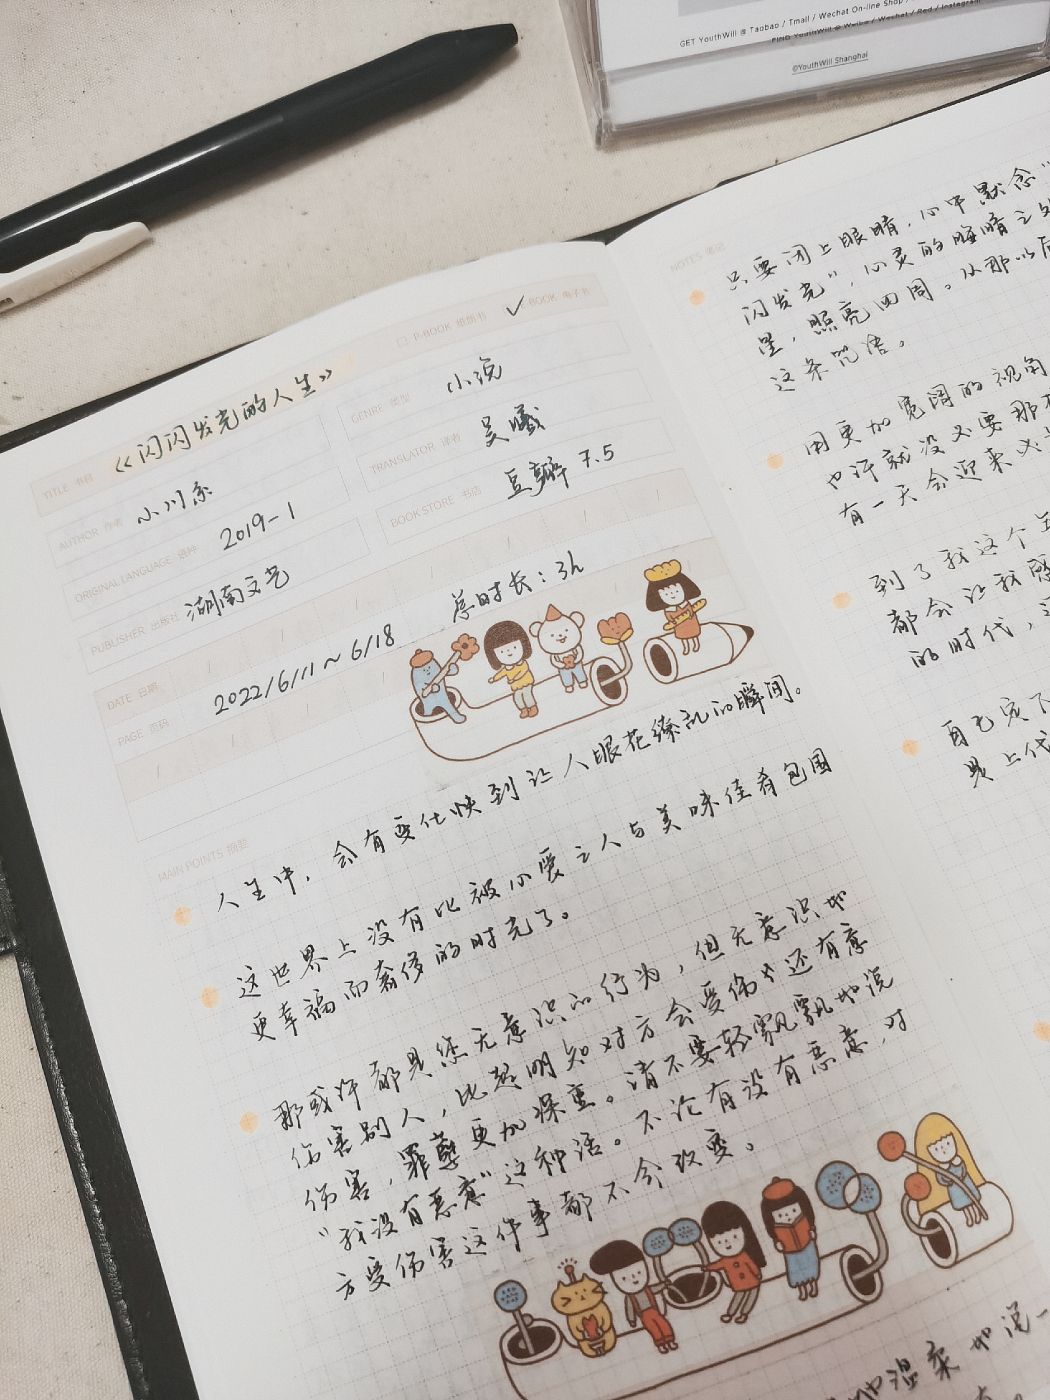 GET YouthWill @ Taobao / Tmall / Wechat On-line Shop /
FIND YouthWill @ Weibo / Wechat / Red / Instagram
©YouthWill Shanghai
□ P-BOOK 纸质书 ✓ BOOK 电子书
TITLE 书名 《闪闪发光的人生》
AUTHOR 作者 小川糸
GENRE 类型 小说
ORIGINAL LANGUAGE 语种 2019-1
TRANSLATOR 译者 吴曦
PUBLISHER 出版社 湖南文艺
BOOK STORE 书店 豆瓣 7.5
DATE 日期 2022/6/11~6/18 总时长:3h
PAGE 页码
MAIN POINTS 摘要
人生中,会有变化快到让人眼花缭乱的瞬间。
这世界上没有比被心爱之人与美味佳肴包围
更幸福而奢侈的时光了。
那或许都是您无意识的行为,但无意识地
伤害别人,比起明知对方会受伤害还有意
伤害,罪孽更加深重。请不要轻飘飘地说
“我没有恶意”这种话。不论有没有恶意,对
方受伤害这件事都不会改变。
NOTES 笔记
只要闭上眼睛,心中默念“
闪发光”,心灵的晦暗之处
星,照亮四周。从那以后
这条咒语。
用更加宽阔的视角
也许就没必要那
有一天会迎来
到了我这个
都会让我感
的时代,
自己定下
是上代
地温柔地说一